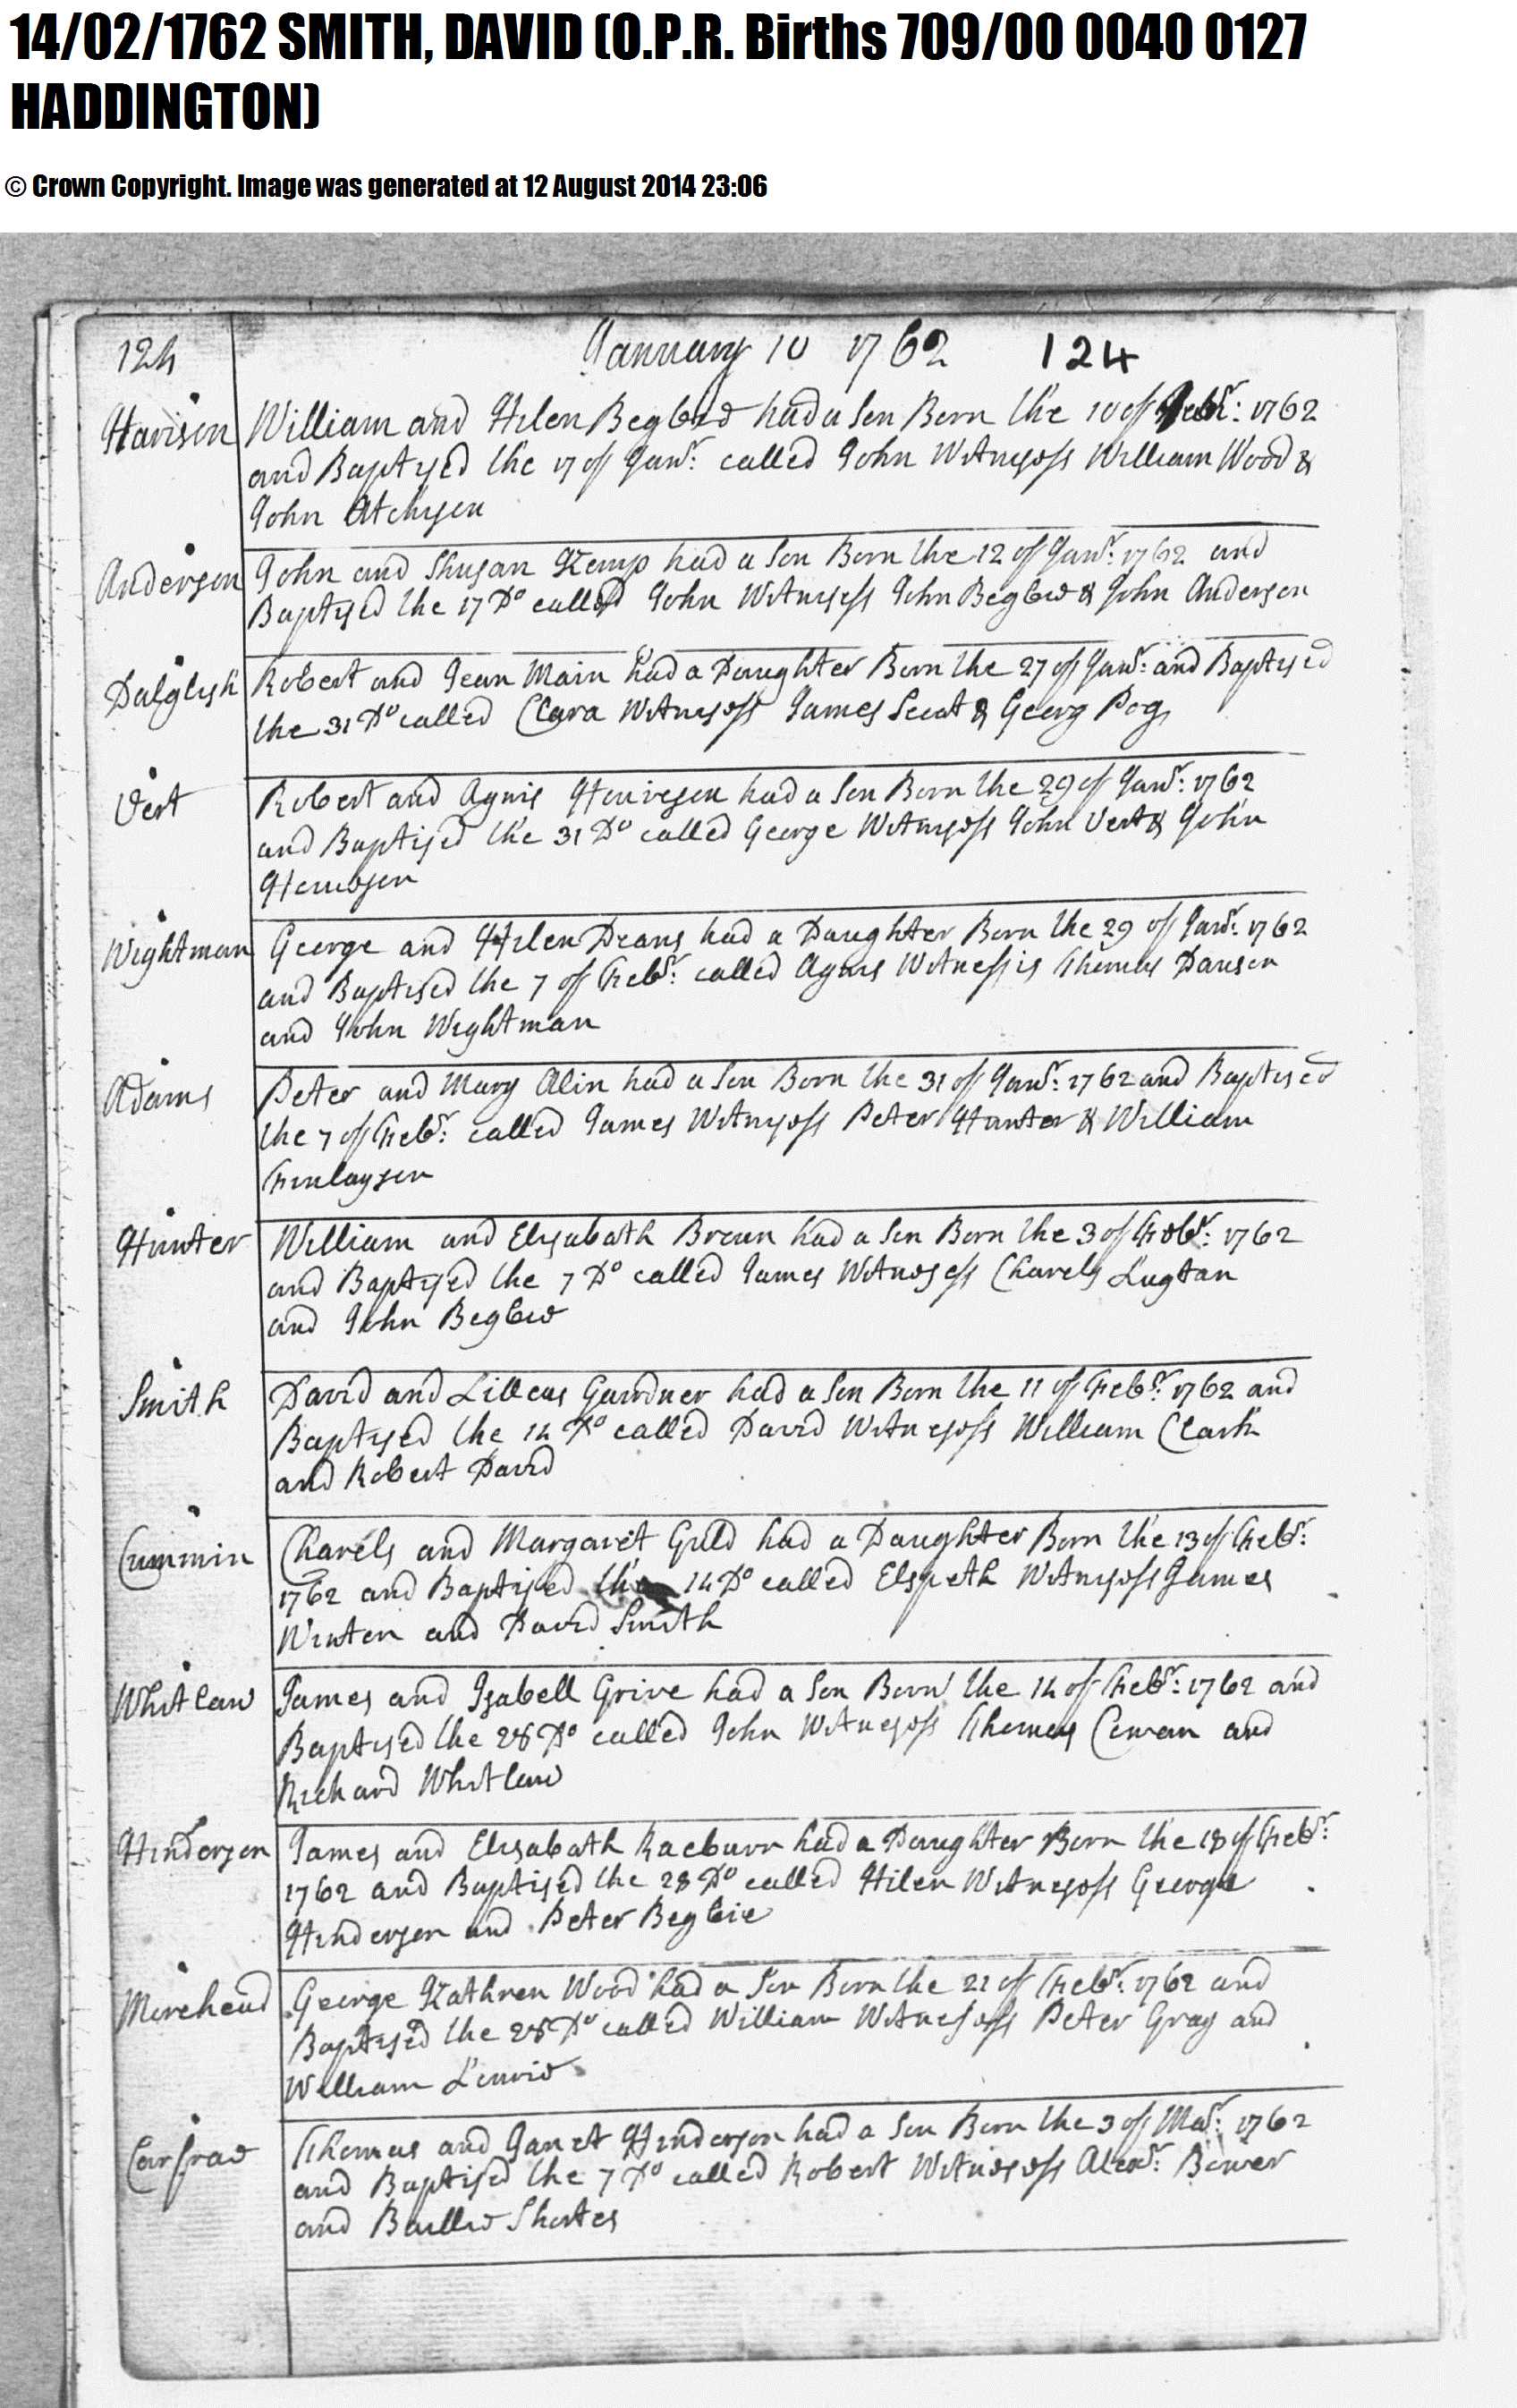 14/02/1762 SMITH, DAVID (O.P.R. Births 709/00 0040 0127
HADDINGTON)
© Crown Copyright. Image was generated at 12 August 2014 23:06
124 January 10 1762 124
Harison William and Helen Begbed had a Son Born the 10 of 1762
and Baptysed the 17 of Janr: called John Witnysess William Wood &
John Atchysen
Anderson John and Shusan Kemp had a Son Born the 12 of Janr: 1762 and
Baptysed the 17 Do called John Witnysess John Begbie & John Anderson
Dalglysh Robert and Jean Main had a Daughter Born the 27 of Janr: and Baptysed
the 31 Do called Clara Witnysess James Scot & Georg Pog
Vert Robert and Agnis had a Son Born the 29 of Janr: 1762
and Baptised the 31 Do called George Witnysess John Vert & John
Wightman George and Hilen Deans had a Daughter Born the 29 of Janr: 1762
and Baptised the 7 of Febr: called Agnis Witnessis Thomas Dauson
and John Wightman
Adams Peter and Mary Alin had a Son Born the 31 of Janr: 1762 and Baptised
the 7 of Febr: called James Witnysess Peter Hunter & William
Finlayson
Hunter William and Elysabath Broun had a Son Born the 3 of Febr: 1762
and Baptysed the 7 Do called James Witnosess Charels Lugtan
and John Begbie
Smith David and Lilleas Gardner had a Son Born the 11 of Febr: 1762 and
Baptysed the 14 Do called David Witnysess William Clark
and Robert David
Cummin Charels and Margarit Guld had a Daughter Born the 13 of Febr:
1762 and Baptised the 14 Do called Elspeth Witnysess James
Winton and David Smith
Whitlaw James and Isabell Grive had a Son Born the 14 of Febr: 1762 and
Baptysed the 28 Do called John Witnesess Thomas Cowan and
Richard Whitlaw
Hinderson James and Elisabath Raeburn had a Daughter Born the 18 of Febr:
1762 and Baptised the 28 Do called Hilen Witnysess George
Hinderson and Peter Begbie
Morehead George Kathren Wood had a Son Born the 21 of Febr: 1762 and
Baptised the 28 Do called William Witnesess Peter Gray and
William
Carfrae Thomas and Janet Hinderson had a Son Born the 3 of Mar: 1762
and Baptised the 7 Do called Robert Witnosess Alexr: Bower
and Baillie Shortes